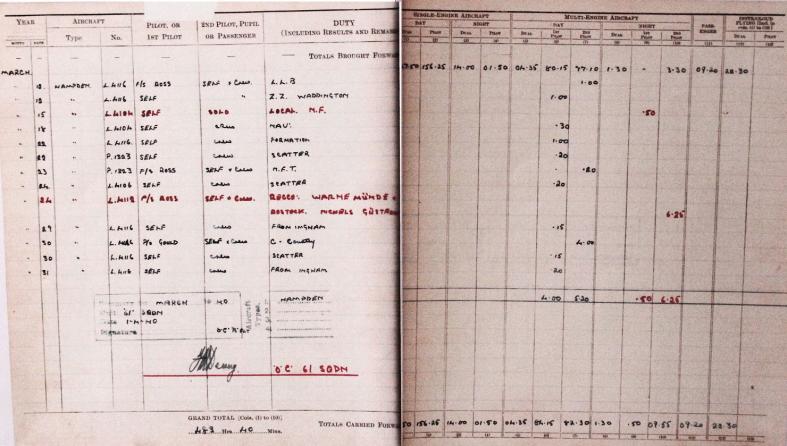 YEAR AIRCRAFT PILOT, OR 1ST PILOT 2ND PILOT, PUPIL OR PASSENGER DUTY (INCLUDING RESULTS AND REMA SINGLE-ENGINE AIRCRAFT MULTI-ENGINE AIRCRAFT PASS-ENGER
MONTH DATE Type No. DAY NIGHT DAY NIGHT
DUAL PILOT DUAL PILOT DUAL 1ST PILOT 2ND PILOT DUAL 1ST PILOT 2ND PILOT DUAL PILOT
— — — — — — TOTALS BROUGHT FORW 156.25 14.00 01.50 04.35 80.15 77.10 1.30 - 3.30 09.20 22.30
MARCH.
HAMPDEN L.4116 F/S ROSS SELF & CREW. L.L.B 1.00
L.4116 SELF " Z.Z. WADDINGTON 1.00
15 " L.4104 SELF SOLO LOCAL. N.F. .50
18 " L.4104 SELF CREW NAV: .30
22 " L.4116. SELF CREW FORMATION 1.00
22 " P.1323 SELF CREW SCATTER .20
23 " P.1323 F/S ROSS SELF & CREW. .20
24 " SELF CREW SCATTER .20
24 " F/S ROSS SELF & CREW. RECCO: WARNEMÜNDE
ROSTOCK. 6.25
29 " L.4116 SELF CREW FROM INGHAM .15
30 " P/O GOULD SELF & CREW C - COUNTRY 4.00
30 " L.4116 SELF CREW SCATTER .15
31 " L.4116 SELF CREW FROM INGHAM .20
MARCH 40 HAMPDEN 4.00 5.20 .50 6.25
61 SQDN Aircraft Types
1-4-40
Signature
O.C. 61 SQDN
GRAND TOTAL [Cols. (1) to (10)]
483 Hrs. 40 Mins. TOTALS CARRIED FORW 50 156.25 14.00 01.50 04.35 84.15 82.30 1.30 .50 09.55 09.20 22.30